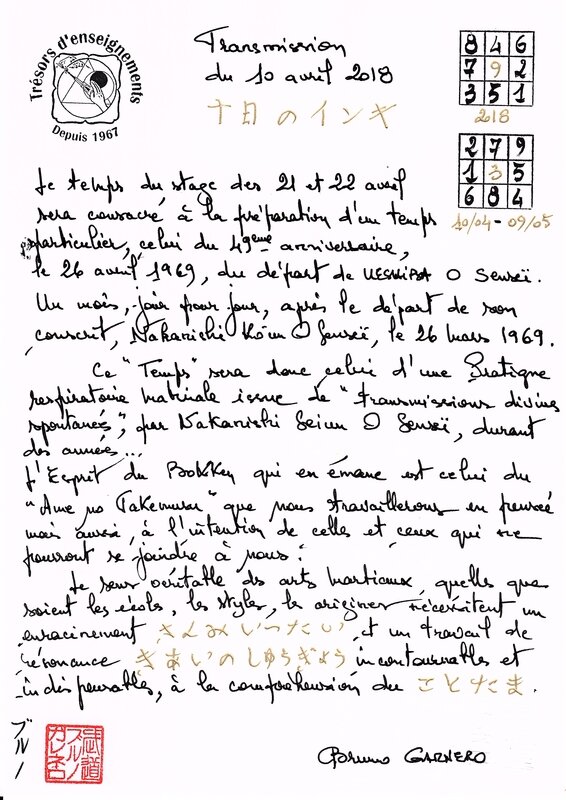 Trésors d'enseignements
Depuis 1967
Transmission
du 10 avril 2018
十日のインキ
8 4 6
7 9 2
3 5 1
2018
2 7 9
1 3 5
6 8 4
10/04 - 09/05
Le temps du stage des 21 et 22 avril
sera consacré à la préparation d'un temps
particulier, celui du 49ème anniversaire,
le 26 avril 1969, du départ de UESHIBA O Senseï.
Un mois, jour pour jour, après le départ de son
conscrit, Nakanishi Kôun O Senseï, le 26 mars 1969.
Ce "Temps" sera donc celui d'une Pratique
respiratoire matinale issue de "transmissions divines
spontanées", par Nakanishi Seiun O Senseï, durant
des années...
L'Esprit du Bokken qui en émane est celui du
"Ame no Takemusu" que nous travaillerons en pensée
mais aussi, à l'intention de celles et ceux qui ne
pourront se joindre à nous.
Le sens véritable des arts martiaux, quelles que
soient les écols, les styles, les origines nécessitent un
enracinement きんみいったい, et un travail de
résonance きあいのしゅうぎょう incontournables et
indispensables, à la compréhension du ことたま.
ブルノ
武道
ブルノ
ガレネロ
Bruno GARNERO